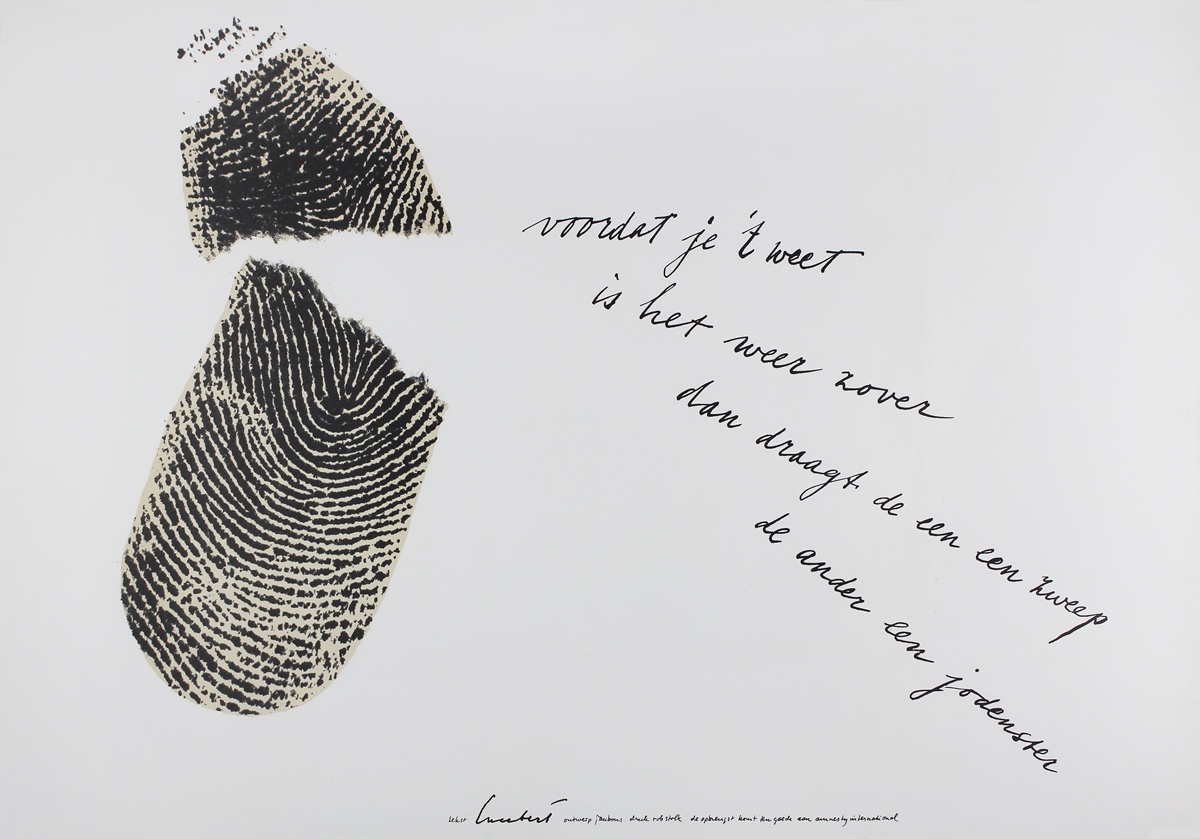 voordat je 't weet
is het weer zover
dan draagt de een een zweep
de ander een jodenster
tekst Lucebert ontwerp jan bons druk rob stolk de opbrengst komt ten goede aan amnesty international